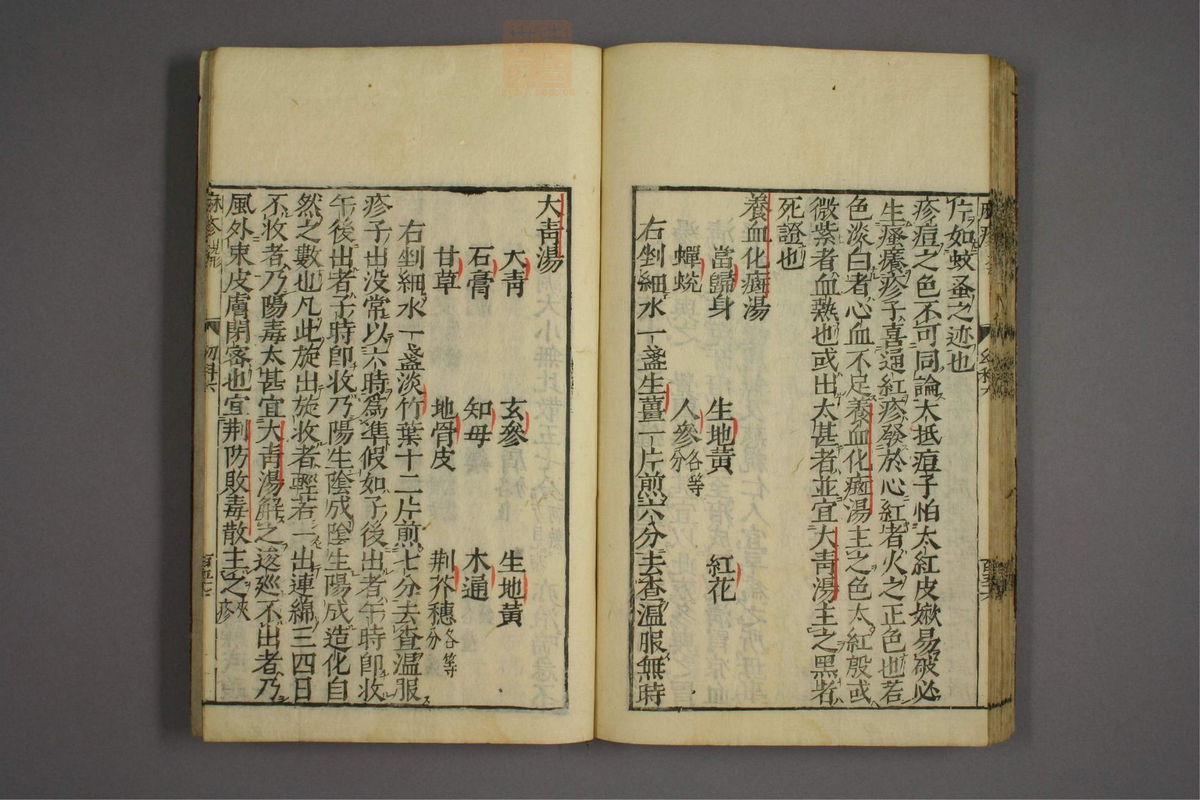 片如蚊蚤之迹也
疹痘之色不可同論大抵痘子怕太紅皮嫩易破必
生瘙癢疹子喜通紅疹發於心紅者火之正色也若
色淡白者心血不足養血化癍湯主之色太紅殷或
微紫者血熱也或出太甚者並宜大青湯主之黑者
死證也
養血化癍湯
當歸身 生地黃 紅花
蟬蛻 人參各等分
右剉細水一盞生薑一片煎六分去查溫服無時
大青湯
大青 玄參 生地黃
石膏 知母 木通
甘草 地骨皮 荆芥穗各等分
右剉細水一盞淡竹葉十二片煎七分去查溫服
疹子出没常以六時爲準假如子後出者午時卽收
午後出者子時卽收乃陽生陰成陰生陽成造化自
然之數也凡此旋出旋收者輕若一出連綿三四日
不收者乃陽毒太甚宜大青湯解之逡廵不出者乃
風外束皮膚閉密也宜荆防敗毒散主之
麻疹 幼科六